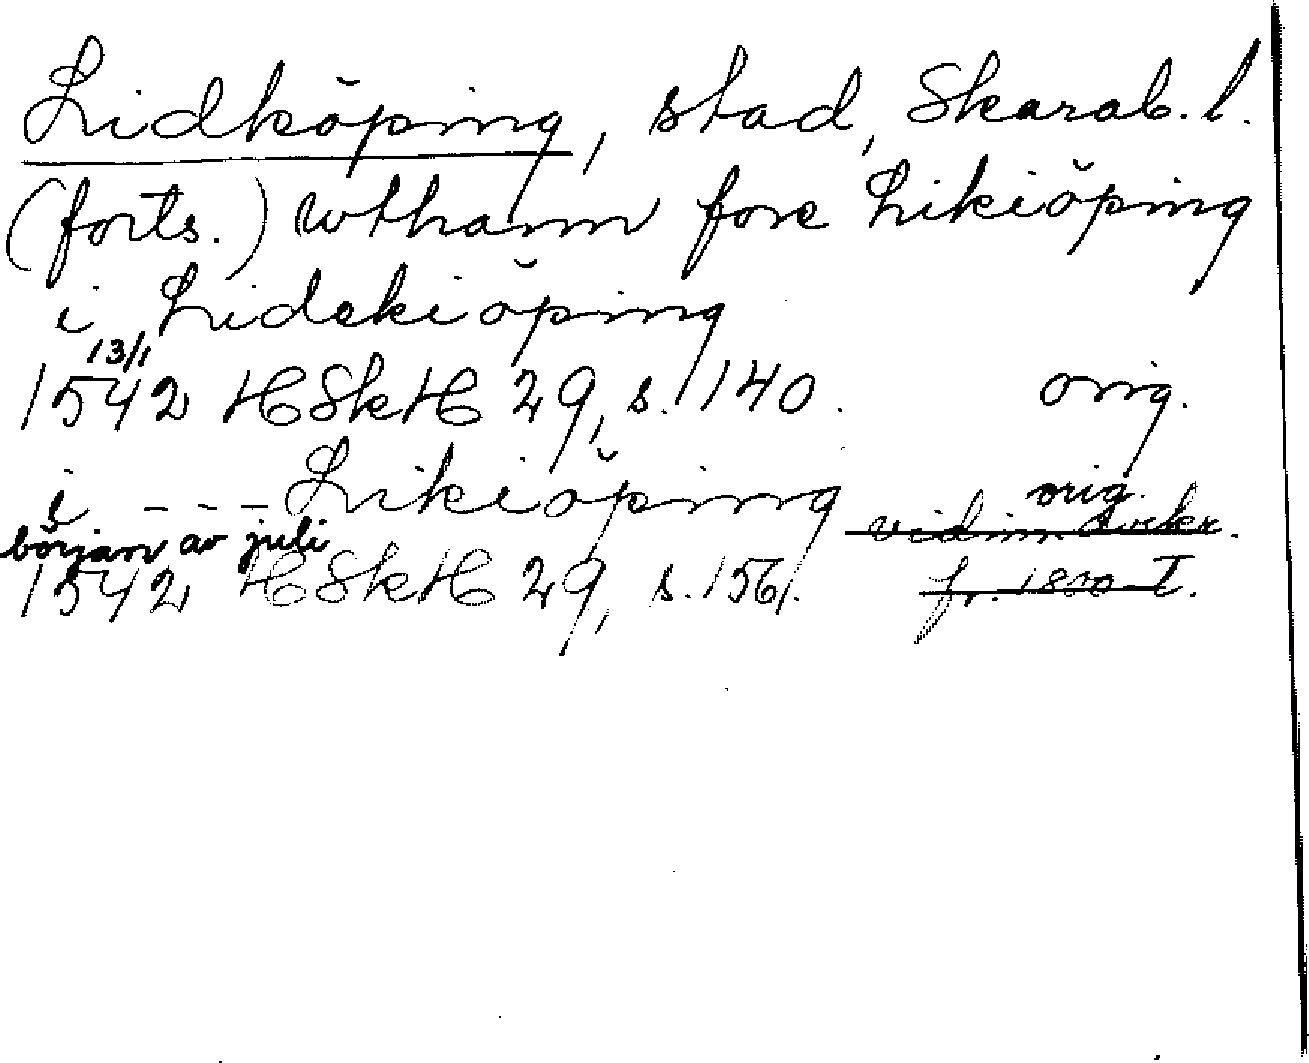 Lidköping, stad, Skarab. l.
(forts.) wthann fore Likiöping
i Lidekiöping
13/1
1542 HSkH 29, s. 140. orig.
i - - - Likiöping orig.
början av juli vidim. avskr.
1542 HSkH 29, s. 156. fr. 1800-t.